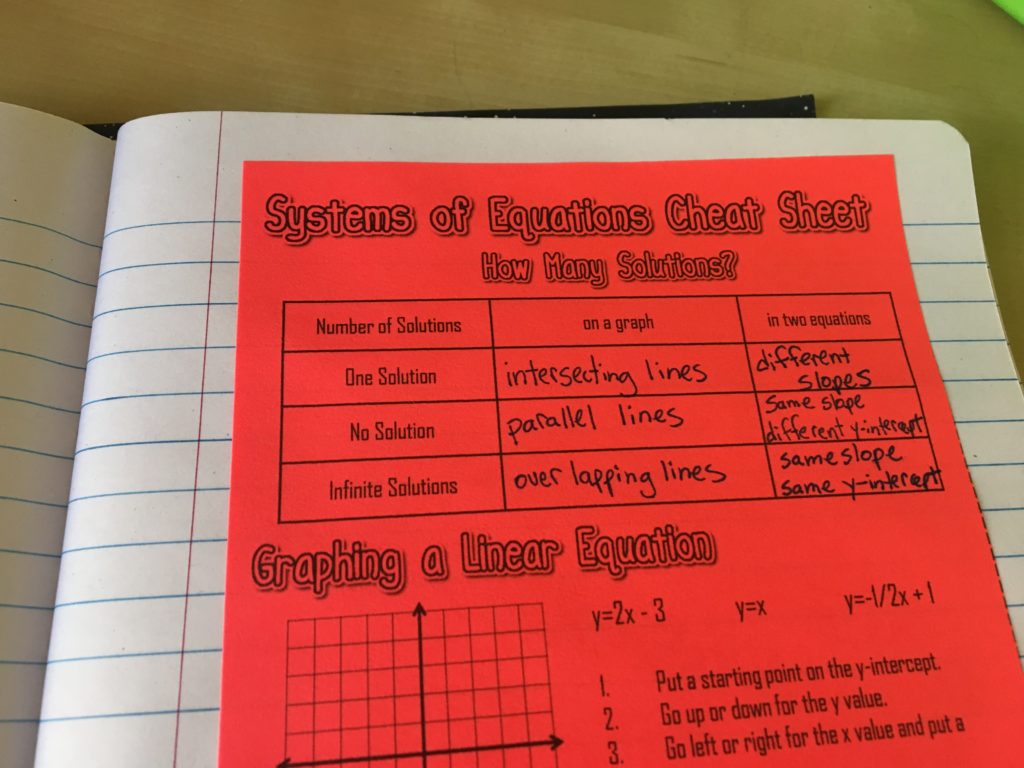 Systems of Equations Cheat Sheet
How Many Solutions?
Number of Solutions
on a graph
in two equations
One Solution
intersecting lines
different
slopes
No Solution
parallel lines
Same slope
different y-intercept
Infinite Solutions
over lapping lines
same slope
same y-intercept
Graphing a Linear Equation
y=2x - 3
y=x
y=-1/2x + 1
1. Put a starting point on the y-intercept.
2. Go up or down for the y value.
3. Go left or right for the x value and put a